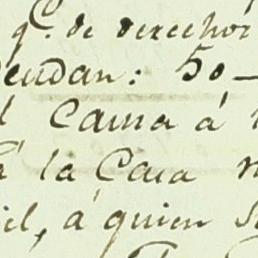 q.e de derechos
eudan: 50
Cama á
á la Casa
il, á quien